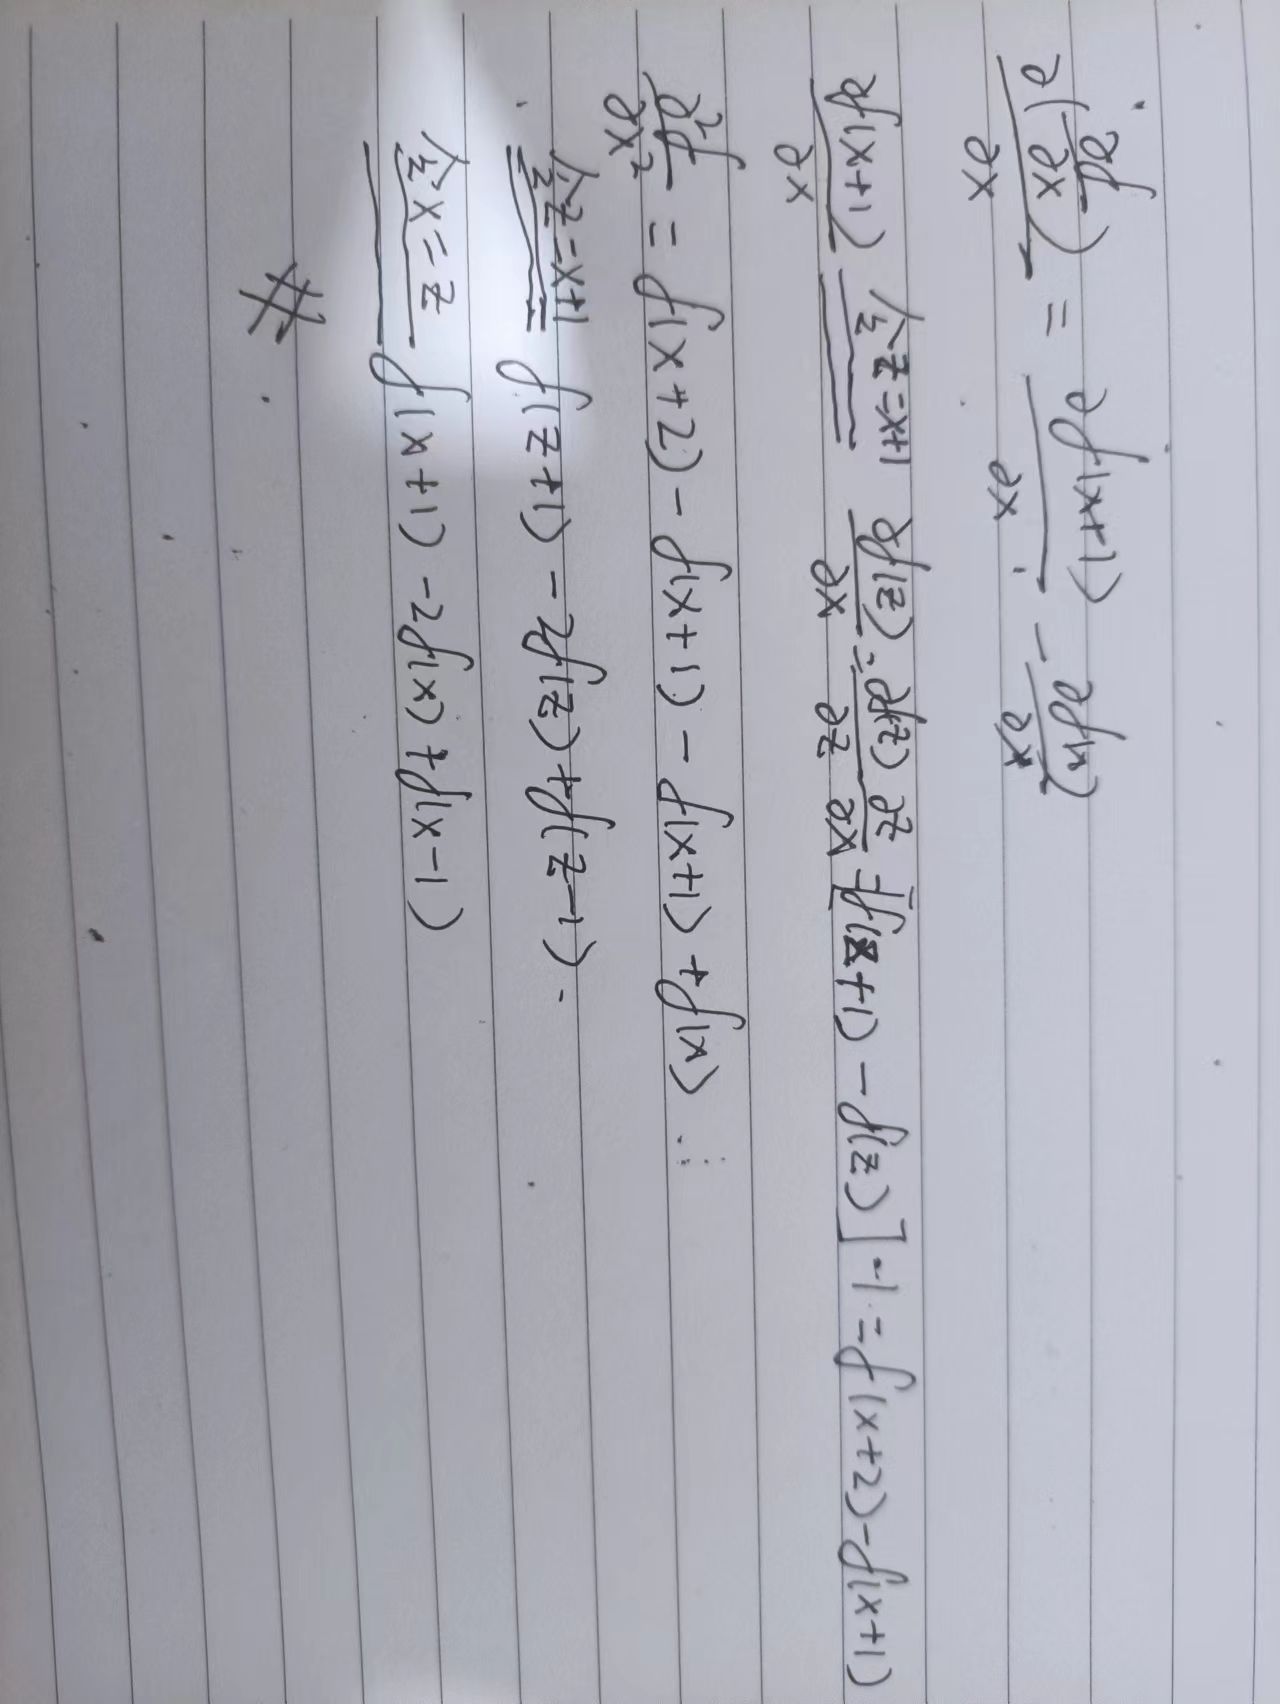 ∂(∂f/∂x)/∂x = ∂f(x+1)/∂x - ∂f(x)/∂x
∂f(x+1)/∂x 令z=x+1 ∂f(z)/∂x = ∂f(z)/∂z ∂z/∂x = [f(z+1) - f(z)]·1 = f(x+2) - f(x+1)
∂²f/∂x² = f(x+2) - f(x+1) - f(x+1) + f(x)
令z=x+1 f(z+1) - 2f(z) + f(z-1).
令x=z f(x+1) - 2f(x) + f(x-1)
#.